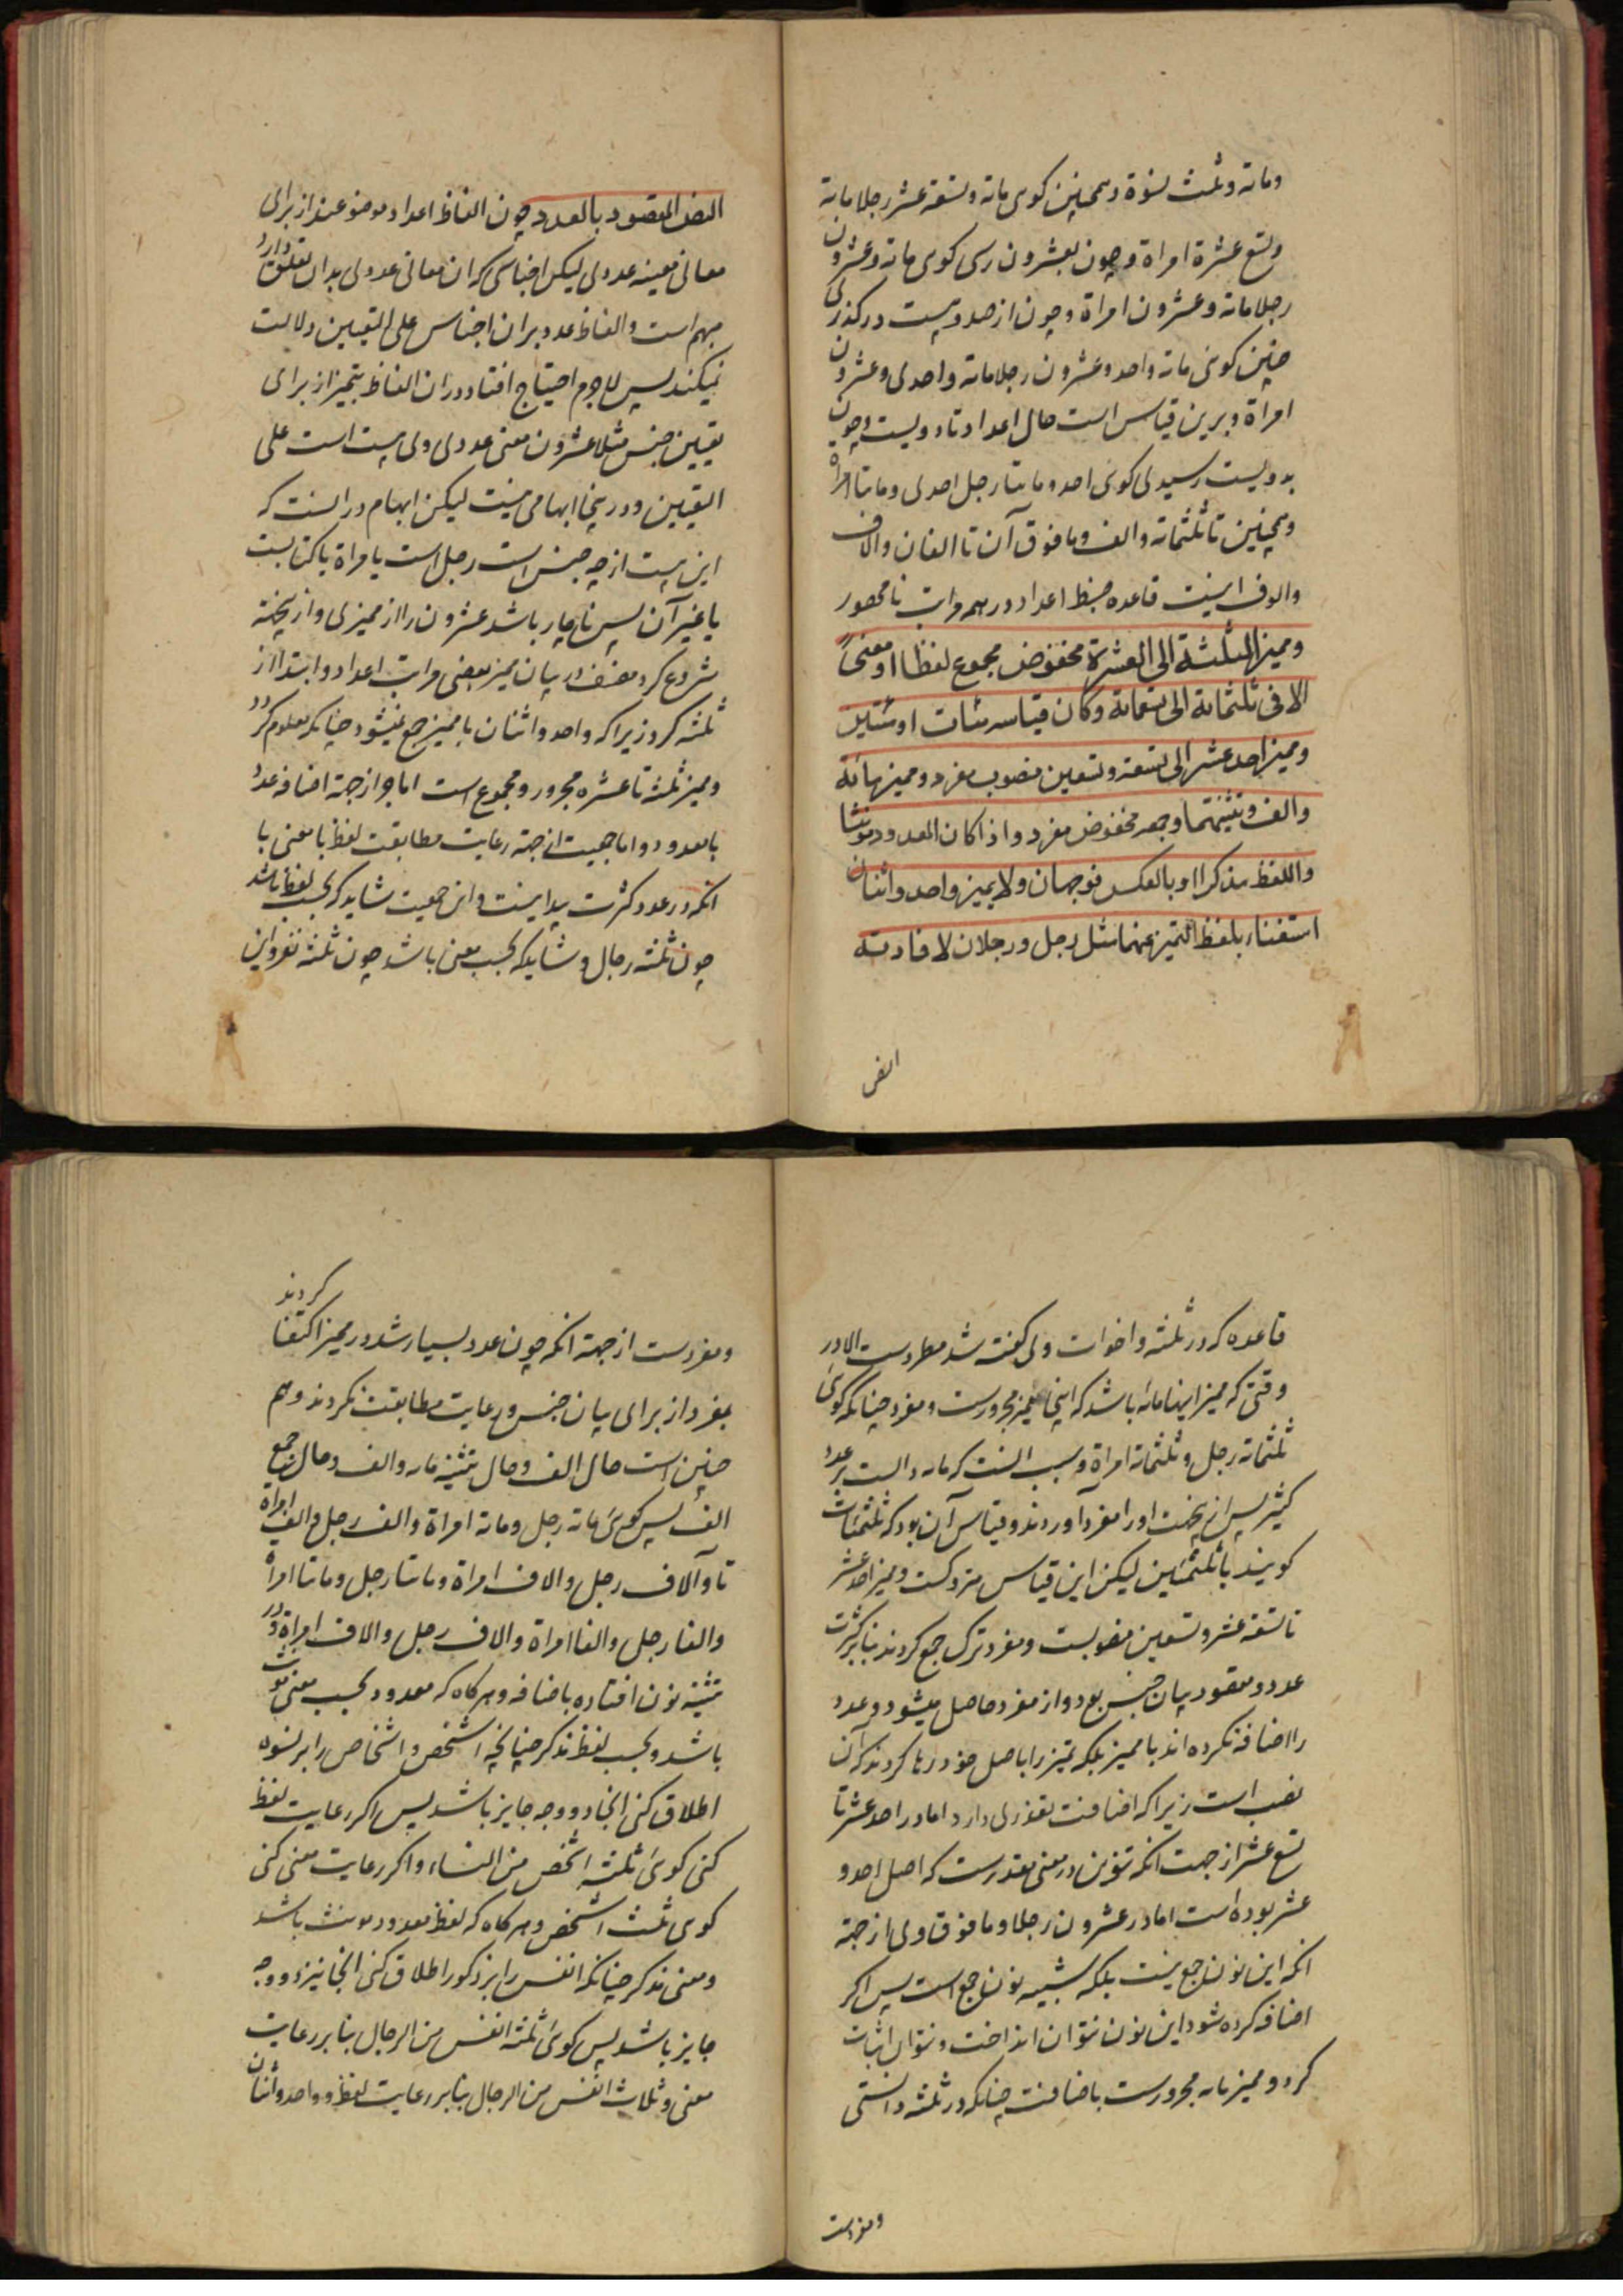 ومائة وثلث نسوة وهمچنین کوی مائة وتسعة عشر رجلا مائة
وتسع عشرة امراة وچون بعشرون رسی کوی مائة وعشرون
رجلا مائة وعشرون امراة وچون از صد وبیست درکذری
چنین کوئی مائة واحد وعشرون رجلا مائة واحدی وعشرون
امراة وبرین قیاس است حال اعداد تا دویست وچون
بدویست رسیدی کوی احد ومائتا رجل احدی ومائتا امراة
وهمچنین تا ثلثمائة والف وما فوق آن تا الفان والاف
والوف اینست قاعده ضبط اعداد در همه مراتب نا محصور
وممیز الثلثة الی العشرة مخفوض مجموع لفظا او معنیً
الا فی ثلثمائة الی تسعمائة وکان قیاسه مئات او مئین
وممیز احد عشر الی تسعة وتسعین منصوب مفرد وممیز مائة
والف وتثنیتهما وجمعه مخفوض مفرد واذا کان المعدود مونثا
واللفظ مذکرا او بالعکس فوجهان ولا یمیز واحد واثنان
استغناء بلفظ التمیز عنهما مثل رجل ورجلان لافادته
النص
النص المقصود بالعدد چون الفاظ اعداد موضوعند از برای
معانی معینه عددی لیکن اجناسی که ان معانی عددی بدان تعلق دارد
مبهم است والفاظ عدد بران اجناس علی التعیین دلالت
نمیکند پس لاجرم احتیاج افتاد دران الفاظ بتمیز از برای
تعیین جنس مثلا عشرون معنی عددی ولی بیست است علی
التعیین ودر ینجا ابهامی نیست لیکن ابهام در انست که
این بیست از چه جنس است رجل است یا مراة یا کتابست
یا غیر آن پس ناچار باشد عشرون را از ممیزی واز یجته
شروع کرد مصنف در بیان ممیز بعضی مراتب اعداد وابتدا از
ثلثه کرد زیرا که واحد واثنان با ممیز جمع نمیشود چنانکه معلوم کردد
وممیز ثلثه تا عشره مجرور ومجموع است اما جر از جهة اضافه عدد
بامعدود واما جمعیت از جهة رعایت مطابقت لفظ با معنی با
انکه در عدد کثرت پیدا نیست واین جمعیت شاید که بحسب لفظ باشد
چون ثلثة رجال وشاید که بحسب معنی باشد چون ثلثة نفر واین
قاعده که در ثلثه واخوات ولی کفته شد مطردست الا در
وقتی که ممیز اینا مائة باشد که اینجا ممیز مجرورست ومفرد چنانکه کوئی
ثلثمائة رجل وثلثمائة امراة وسبب انست که مائه دالست بر عدد
کثیر پس ازین جهت اورا مفرد آوردند وقیاس آن بود که ثلثمئات
کویند یا ثلثمئین لیکن این قیاس متروکست وممیز احد عشر
تا تسعة عشر وتسعین منصوبست ومفرد ترک جمع کردند بنا بر کثرت
عدد ومقصود بیان جنس بود واز مفرد حاصل میشود وعدد
را اضافه نکرده اند با ممیز بلکه تمیز را با صل خود رها کردند که آن
نصب است زیرا که اضافت تعذری دارد اما در احد عشر تا
تسع عشر از جهت انکه تنوین در معنی مقدرست که اصل احد و
عشر بوده است اما در عشرون رجلا وما فوق ولی از جهة
انکه این نون نون جمع نیست بلکه شبیه نون جمع است پس اکر
اضافه کرده شود این نون نتوان انداخت ونتوان اثبات
کرد وممیز مائه مجرورست باضافت چنانکه در ثلثه دانستی
ومفردست
کردند
ومفردست از جهة انکه چون عدد بسیار شد در ممیز اکتفا
بمفرد از برای بیان جنس ورعایت مطابقت نکردند وهم
چنین است حال الف وحال تثنیه مائه والف وحال جمع
الف پس کوی مائة رجل ومائة امراة والف رجل والف امراة
تا وآلاف رجل والاف امراة ومائتا رجل ومائتا امراة
والفا رجل والفا امراة والاف رجل والاف امراة ودر
تثنیه نون افتاده باضافه وهرکاه که معدود بحسب معنی مونث
باشد وبحسب لفظ مذکر چنانچه اشخص واشخاص را بر نسوه
اطلاق کنی انجا دو وجه جایز باشد پس اکر رعایت لفظ
کنی کوی ثلثة اشخص من النساء واکر رعایت معنی کنی
کوی ثلث اشخص وهرکاه که لفظ معدود مونث باشد
ومعنی مذکر چنانکه انفس را بر ذکور اطلاق کنی انجا نیز دو وجه
جایز باشد پس کوی ثلثة انفس من الرجال بنا بر رعایت
معنی وثلاث انفس من الرجال بنا بر رعایت لفظ وواحد واثنان